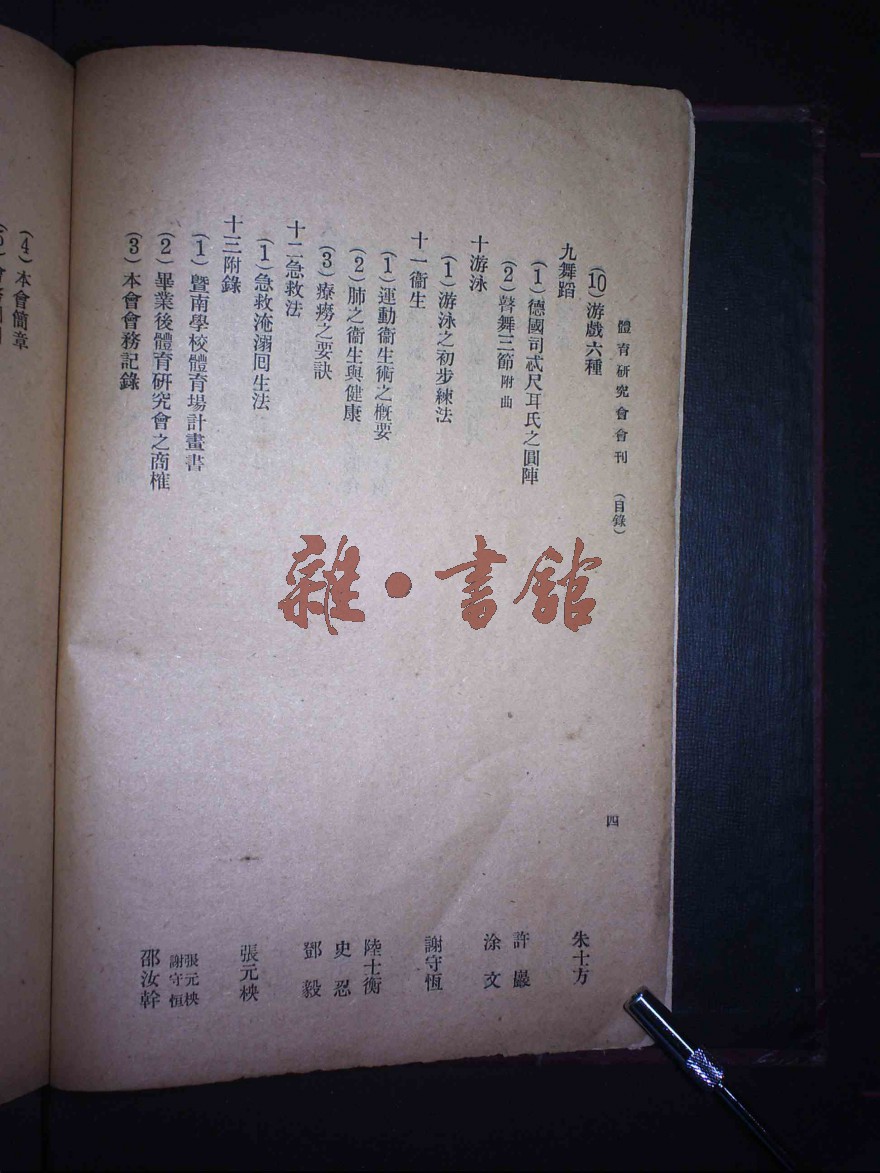 體育研究會會刊 (目錄) 四
(10)游戲六種 朱士方
九舞蹈
(1)德國司忒尺耳氏之圓陣 許巖
(2)聱舞三節附曲 涂文
十游泳
(1)游泳之初步練法 謝守恆
十一衞生
(1)運動衞生術之概要 陸士衡
(2)肺之衞生與健康 史忍
(3)療癆之要訣 鄧毅
十二急救法
(1)急救淹溺回生法 張元柍
十三附錄
(1)暨南學校體育場計畫書 張元柍 謝守恒
(2)畢業後體育研究會之商榷 邵汝幹
(3)本會會務記錄
(4)本會簡章
雜·書館